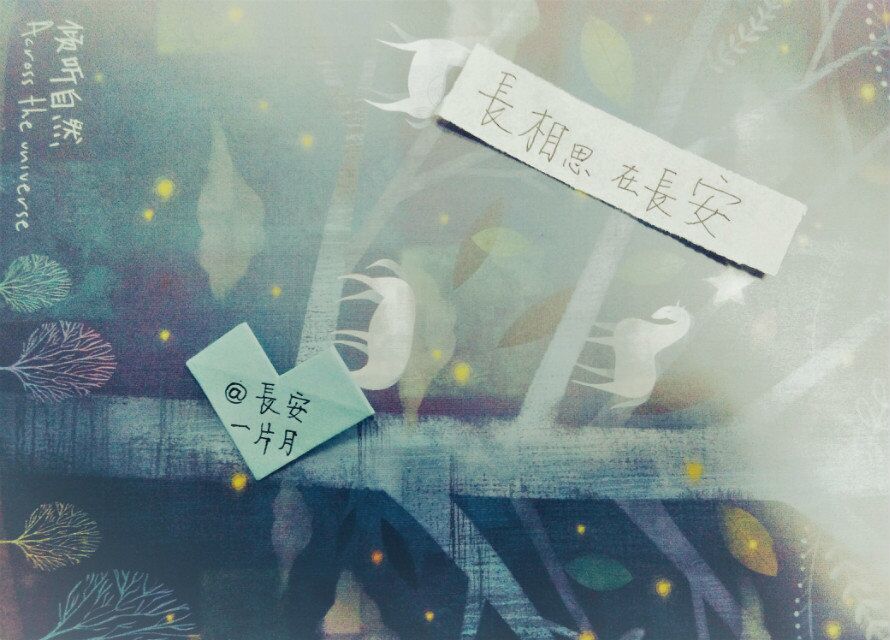 倾听自然,
Across the universe
長相思在長安
@長安
一片月